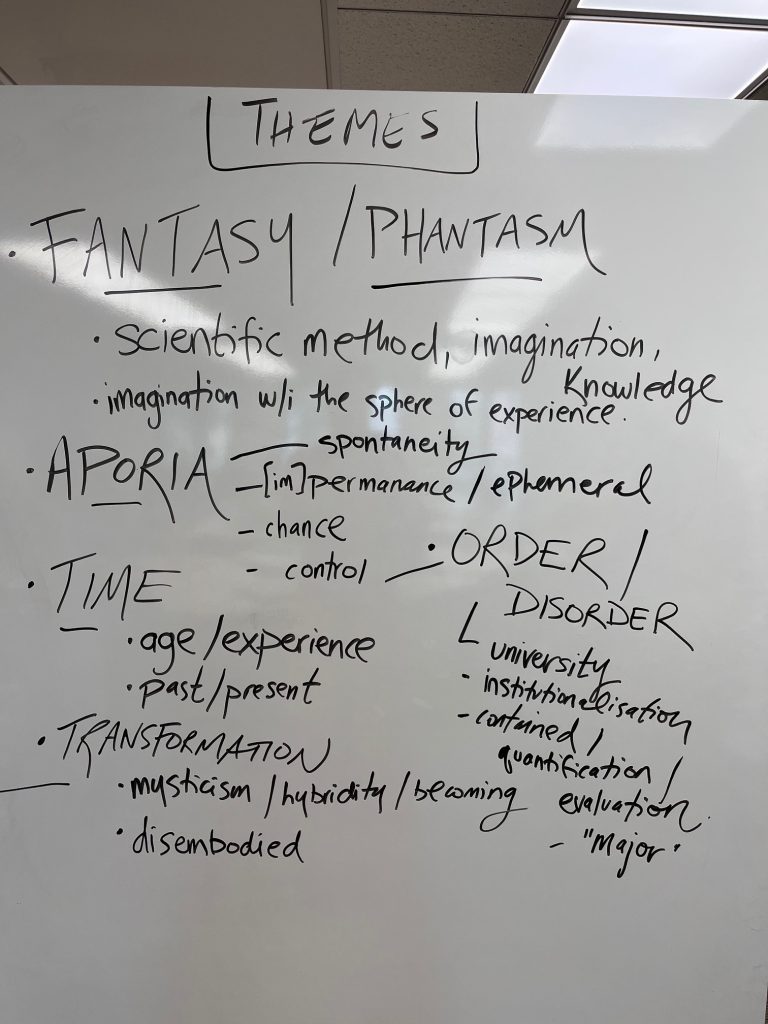 THEMES
• FANTASY / PHANTASM
• scientific method, imagination,
Knowledge
• imagination w/i the sphere of experience.
• APORIA — spontaneity
– [im]permanance / ephemeral
– chance
– control
• TIME
• age/experience
• past/present
• TRANSFORMATION
• mysticism / hybridity / becoming
• disembodied
• ORDER /
DISORDER
university
- institutionalisation
- contained /
quantification /
evaluation.
- "Major"